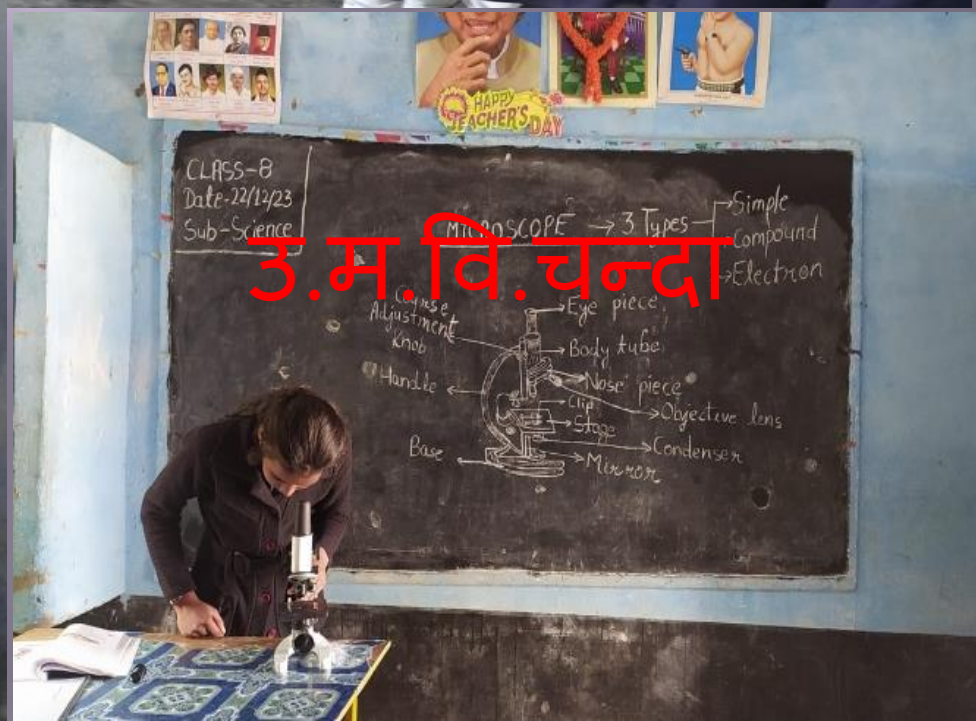 HAPPY
TEACHER'S DAY
CLASS-8
Date-22/12/23
Sub-Science
MICROSCOPE → 3 Types
Simple
Compound
Electron
उ.म.वि.चन्दा
Coarse
Adjustment
Knob
Handle
Base
Eye piece
Body tube
Nose piece
Clip
Objective lens
Stage
Condenser
Mirror